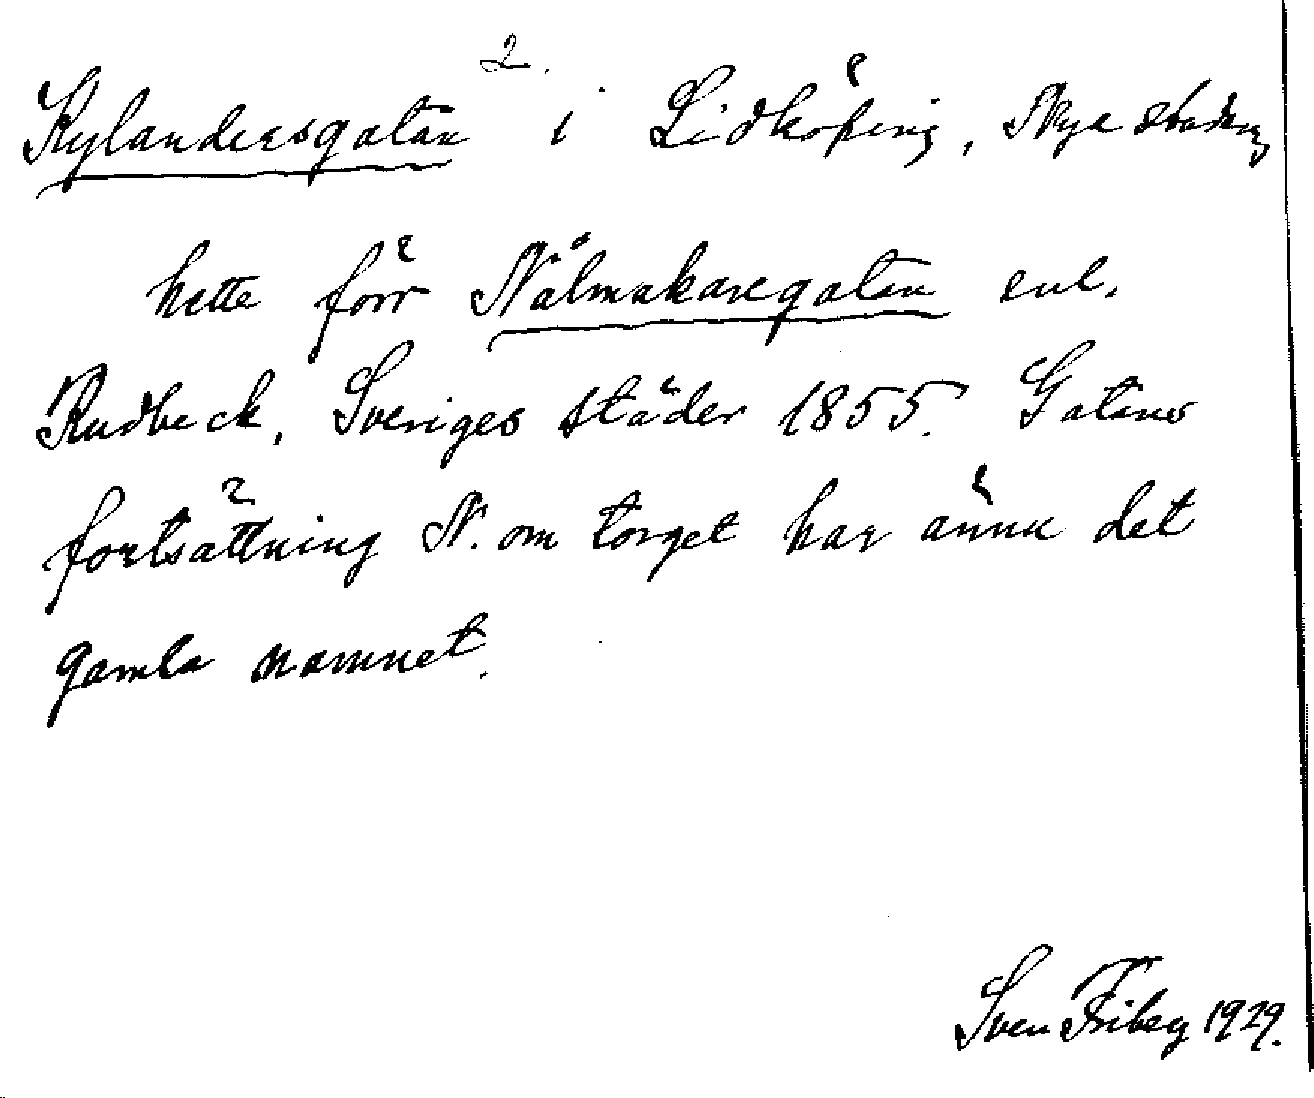 2.
Kylandersgatan i Lidköping, Nya staden
hette förr Nålmakaregatan enl.
Rudbeck, Sveriges städer 1855. Gatans
fortsättning N. om torget har ännu det
gamla namnet.
Sven Friberg 1929.